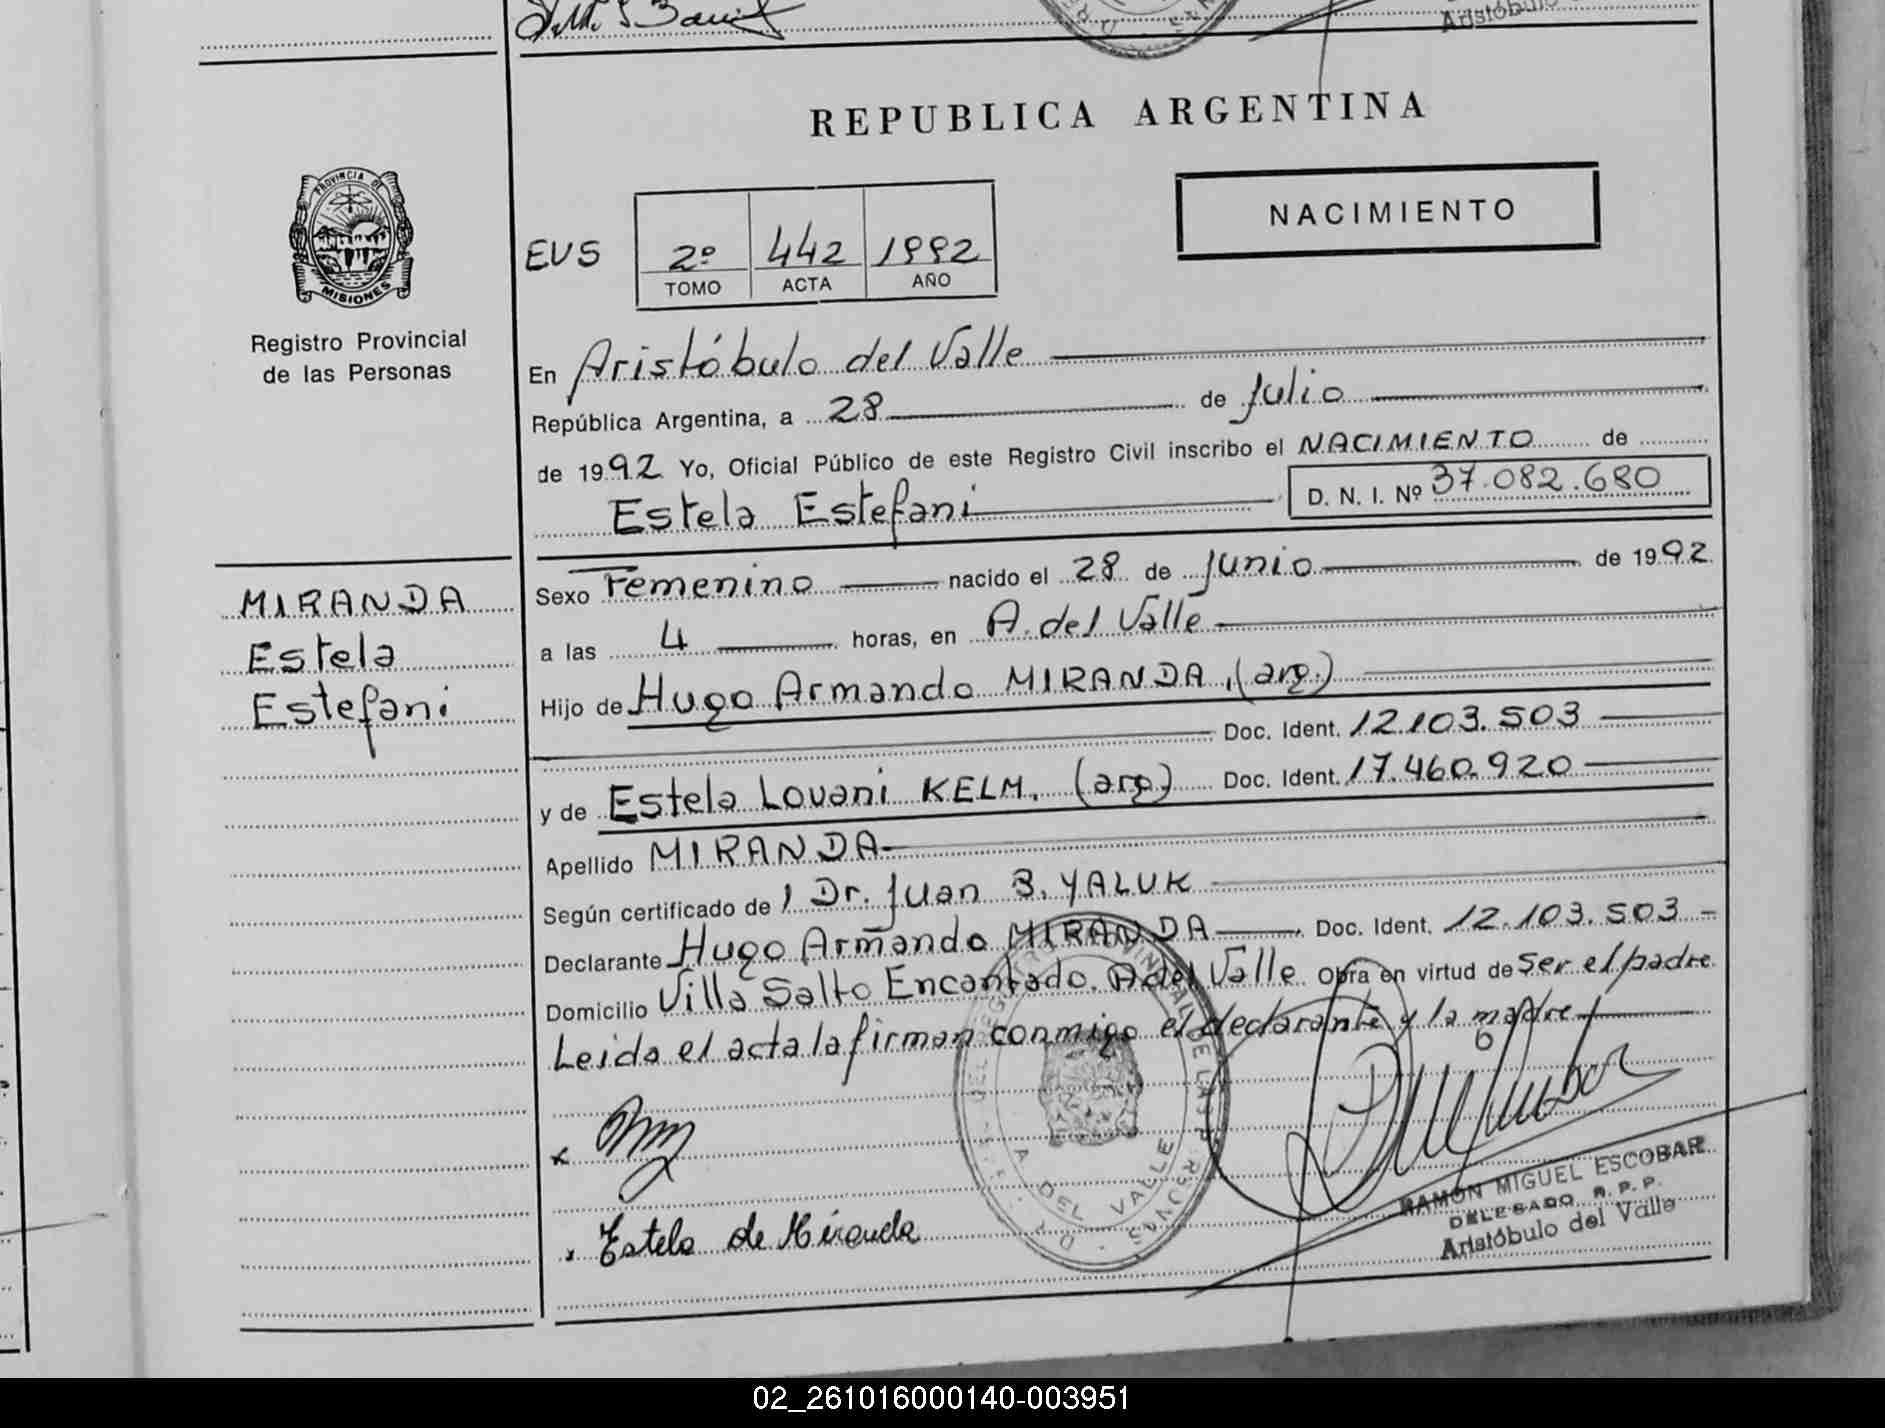 Aristóbulo
REPUBLICA ARGENTINA
PROVINCIA DE
MISIONES
Registro Provincial
de las Personas
NACIMIENTO
EUS
2º 442 1992
TOMO ACTA AÑO
En Aristóbulo del Valle
República Argentina, a 28 de Julio
de 1992 Yo, Oficial Público de este Registro Civil inscribo el NACIMIENTO de
Estela Estefani D. N. I. Nº 37.082.680
MIRANDA
Estela
Estefani
Sexo Femenino nacido el 28 de Junio de 1992
a las 4 horas, en A. del Valle
Hijo de Hugo Armando MIRANDA, (arg.)
Doc. Ident. 12.103.503
y de Estela Lovani KELM. (arg.) Doc. Ident. 17.460.920
Apellido MIRANDA
Según certificado de 1 Dr. Juan B. YALUK
Declarante Hugo Armando MIRANDA Doc. Ident. 12.103.503
Domicilio Villa Salto Encantado. A del Valle Obra en virtud de Ser el padre
Leida el acta la firman conmigo el declarante y la madre
Estela de Miranda
A DEL VALLE
RAMÓN MIGUEL ESCOBAR
DELEGADO R.P.P.
Aristóbulo del Valle
02_261016000140-003951